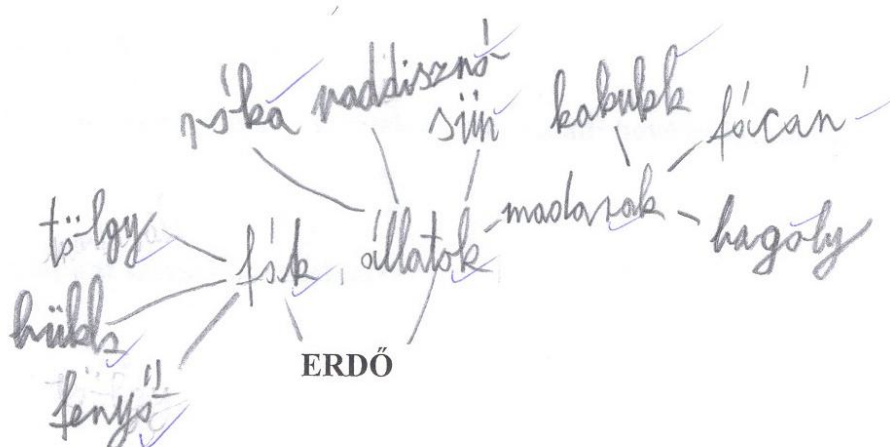 róka vaddisznó sün kakukk fácán
tölgy fák állatok madarak bagoly
bükk
fenyő
ERDŐ